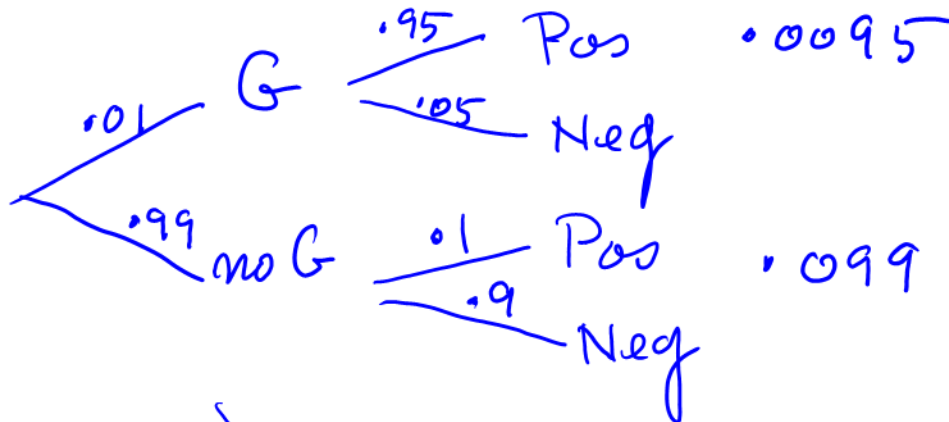 .95 Pos .0095
G
.01 .05 Neg
.99 no G .1 Pos .099
.9 Neg